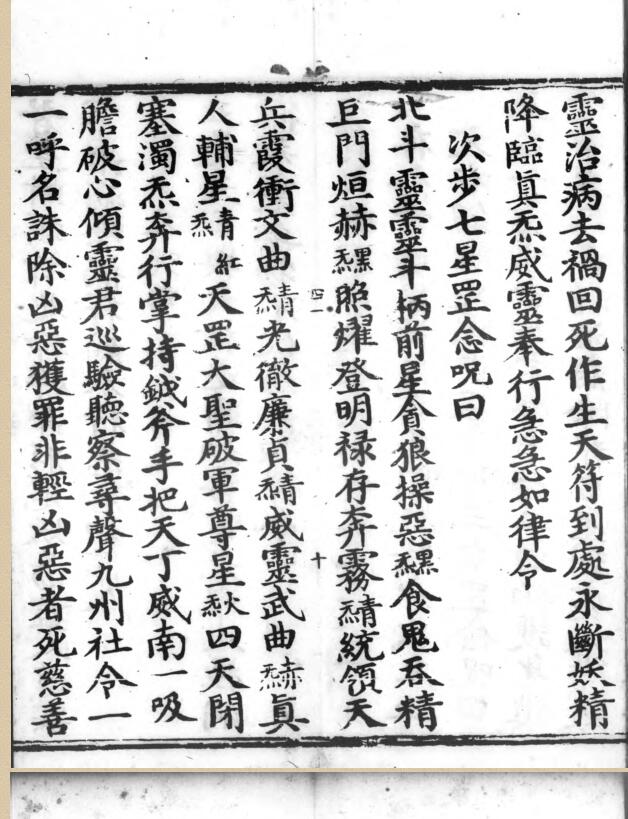 靈治病去禍回死作生天符到處永斷妖精
降臨眞炁威靈奉行急急如律令
次步七星罡念呪曰
北斗靈靈斗柄前星貪狼操惡黑炁食鬼吞精
巨門烜赫黑炁照耀登明禄存奔霧青炁統領天
四一
十
兵霞衝文曲青炁光徹廉貞青炁威靈武曲赤炁眞
人輔星青炁紅天罡大聖破軍尊星火炁四天閉
塞濁炁奔行掌持鉞斧手把天丁威南一吸
膽破心傾靈君巡驗聽察尋聲九州社令一
一呼名誅除凶惡獲罪非輕凶惡者死慈善